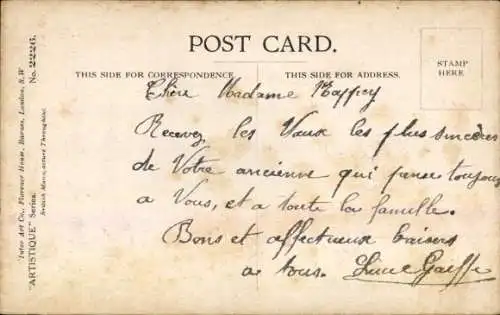 POST CARD.
THIS SIDE FOR CORRESPONDENCE.
THIS SIDE FOR ADDRESS.
STAMP
HERE
Chère Madame
Recevez les Vœux les plus sincères
de Votre ancienne qui pense toujours
a Vous, et a toute la famille.
Bons et affectueux baisers
a tous.
"Inter Art Co., Florence House, Barnes, London, S.W
"ARTISTIQUE" Series. No. 2226.
British Manufacture Throughout.